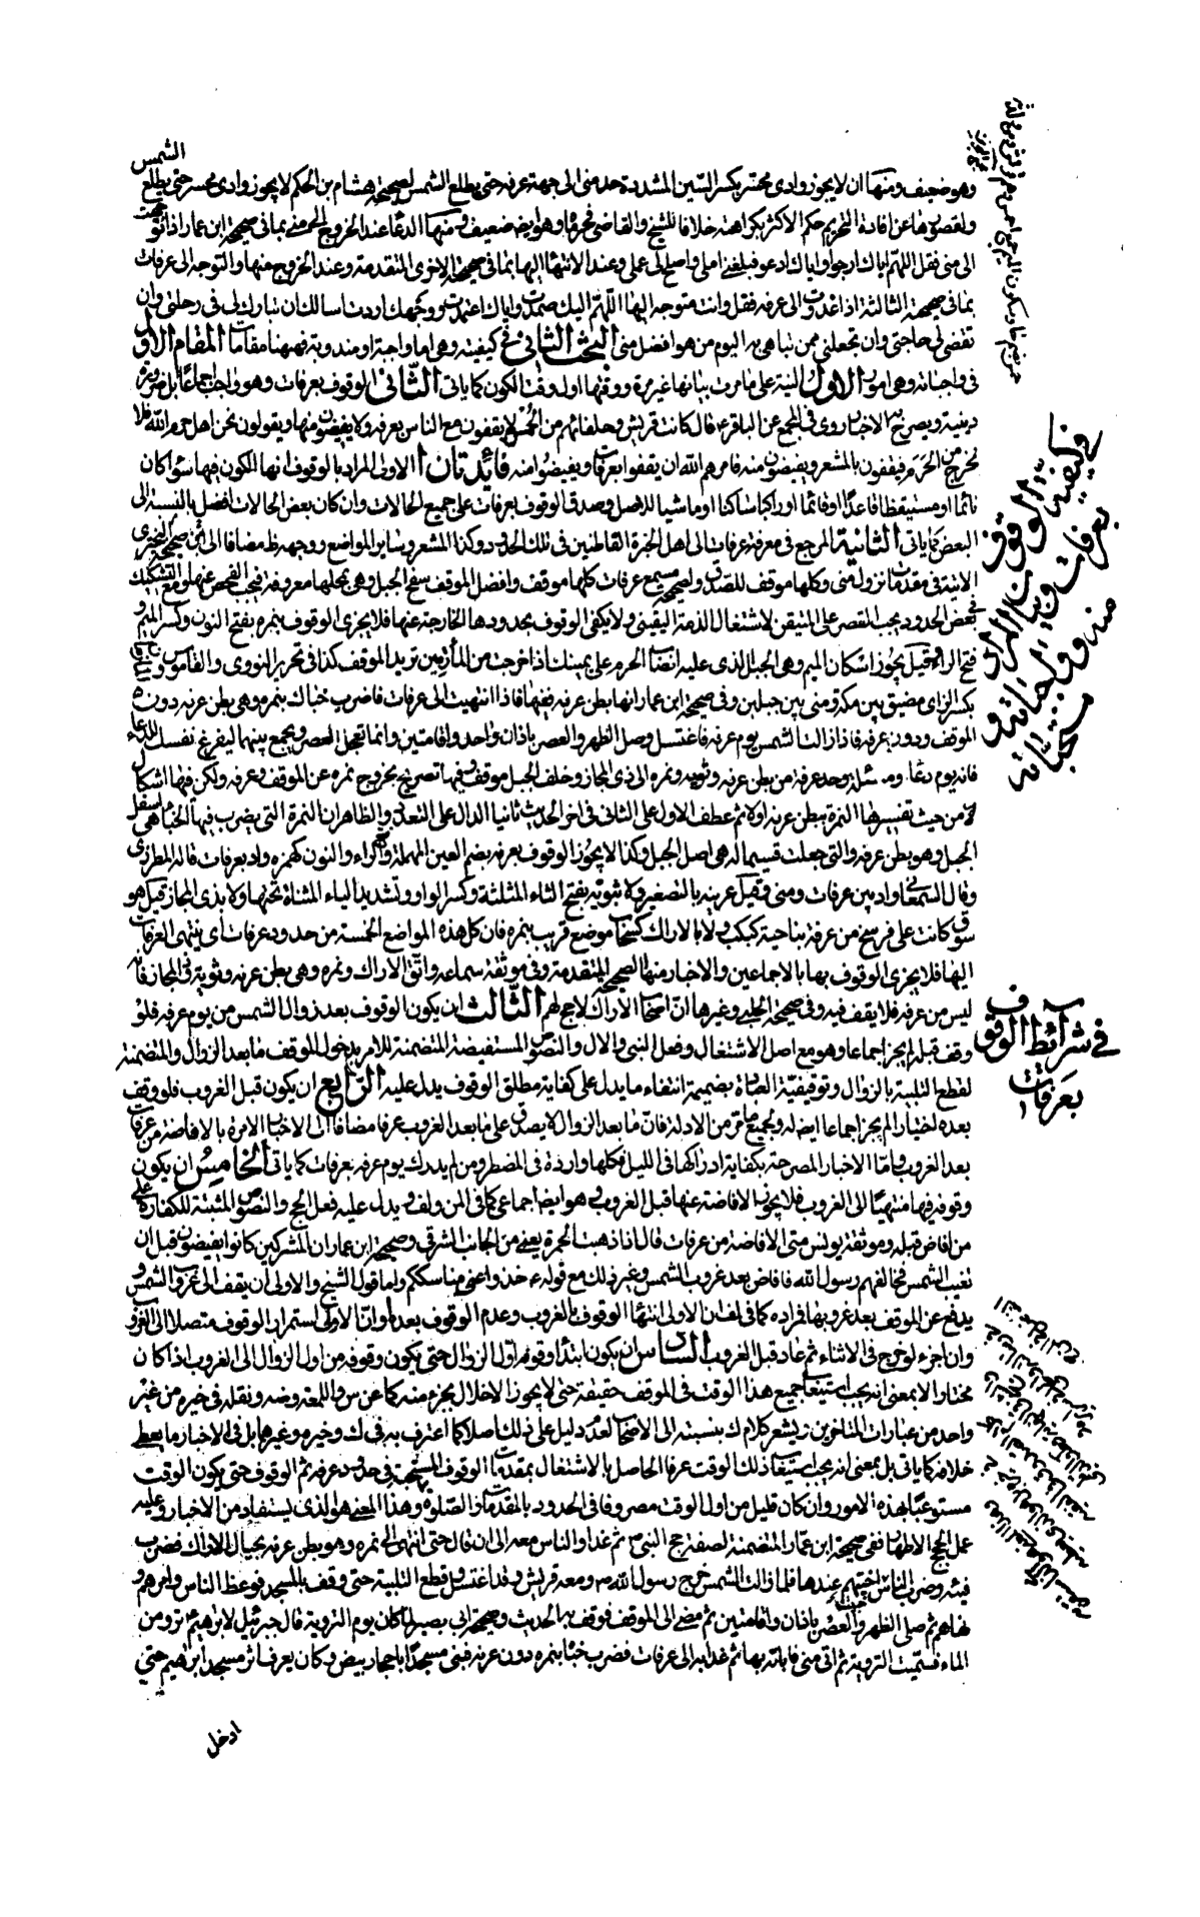 الشمس
وهو ضعيف ومنها ان لا يجوز وادى محسّر بكسر السّين المشددة حد منى الى جهة عرفة حتى يطلع الشمس لصحيحة هشام بن الحكم لا يجوز وادى محسر حتى يطلع
ولقصورها عن افادة التحريم حكم الاكثر بكراهته خلافا للشيخ والقاضى فحرماه وهو ايضا ضعيف ومنها الدعا عند الخروج الى منى بما فى صحيحة ابن عمار اذا توجهت
الى منى فقل اللهم اياك ارجوا واياك ادعو فبلغنى املى واصلح لى عملى وعند الانتهاء اليها بما فى صحيحته الاخرى المتقدمة وعند الخروج منها والتوجه الى عرفات
بما فى صحيحته الثالثة اذا غدوت الى عرفه فقل وانت متوجه اليها اللهم اليك صمدت واياك اعتمدت ووجهك اردت اسالك ان تبارك لى فى رحلتى وان
تقضى لى حاجتى وان تجعلنى ممن تباهى به اليوم من هو افضل منى البحث الثانى فى كيفيته وهى اما واجبة او مندوبة فههنا مقامات المقام الاول
فى واجباته وهى امور الاول النية على ما مر بيانها غير مرة ووقتها اول وقت الكون كما ياتى الثانى الوقوف بعرفات وهو واجب اجماعا بل ضرورة
دينية ويصرح به الاخبار روى فى المجمع عن الباقر ع قال كانت قريش وحلفائهم من الحمس لا يقفون مع الناس بعرفه ولا يفيضون منها ويقولون نحن اهل حرم الله فلا
نخرج من الحرم فيقفون بالمشعر ويفيضون منه فامرهم الله ان يقفوا بعرفات ويفيضوا منه فائدتان الاولى المراد بالوقوف انها الكون فيها سواء كان
نائما او مستيقظا قاعدا او قائما او راكبا ساكنا او ماشيا للاصل وصدق الوقوف بعرفات على جميع الحالات وان كان بعض الحالات افضل بالنسبة الى
البعض كما ياتى الثانية المرجع فى معرفة عرفات الى اهل الخبرة القاطنين فى تلك الحدود وكذا المشعر وسائر المواضع ووجهه ظ مضافا الى صحيحة البخترى
الاتية فى مقدمات نزول منى وكلها موقف للصدق ولصحيحة مسمع عرفات كلها موقف وافضل الموقف سفح الجبل وهى بجملتها معروفة فيجب الفحص عنها ولو مع التشكيك
فى بعض الحدود يجب القصر على المتيقن لاشتغال الذمة اليقينى ولا يكفى الوقوف بحدودها الخارجة عنها فلا يجزى الوقوف بنمره بفتح النون وكسر الميم و
فتح الراء وقيل يجوز اسكان الميم وهى الجبل الذى عليه انصاب الحرم على يمينك اذا خرجت من المأزمين تريد الموقف كذا فى تحرير النووى والقاموس
بكسر الزاى مضيق بين مكة ومنى بين جبلين وفى صحيحة ابن عمار انها بطن عرنه ففيها فاذا انتهيت الى عرفات فاضرب خباك بنمره وهى بطن عرنه دون
الموقف ودون عرفه فاذا زالت الشمس يوم عرفه فاغتسل وصل الظهر والعصر باذان واحد واقامتين وانما تعجل العصر وتجمع بينهما ليفرغ نفسك للدعاء
فانه يوم دعاء وحد عرفة من بطن عرنه وثويه ونمره الى ذى المجاز وخلف الجبل موقف وفيها تصريح بخروج نمره عن الموقف وعرفه ولكن فيها اشكال
من حيث تفسيرها النمرة ببطن عرنه اولا ثم عطف الاول على الثانى فى اخر الحديث ثانيا الدال على التعدد والظاهر ان النمرة التى يضرب فيها الخباء هى اسفل
الجبل وهو بطن عرفه والتى جعلت قسيما له هى اصل الجبل وكذا لا يجوز الوقوف بعرنه بضم العين المهملة وفتح الراء والنون كهمزه واد بعرفات قاله المطرزى
وقال السمعانى واد بين عرفات ومنى وقيل عرينه بالتصغير ولا بثويه بفتح الثاء المثلثة وكسر الواو وتشديد الياء المثناة تحتها ولا بذى المجاز قيل هو
سوق كانت على فرسخ من عرفة بناحية كبكب ولا بالاراك كسحاب موضع قريب بنمره فان كل هذه المواضع الخمسة من حدود عرفات اى ينتهى العرفات
اليها فلا يجزى الوقوف بها بالاجماعين والاخبار منها الصحيحة المتقدمة وفى موثقة سماعه واتق الاراك ونمره وهى بطن عرنه وثويه وذى المجاز فانه
ليس من عرفه فلا يقف فيه وفى صحيحة الحلبى وغيرها ان اصحاب الاراك لا حج لهم الثالث ان يكون الوقوف بعد زوال الشمس من يوم عرفه فلو
وقف قبله لم يجز اجماعا وهو مع اصل الاشتغال وفعل النبى والال والنصوص المستفيضة المتضمنة للامر بدخول الموقف ما بعد الزوال والمتضمنة
لقطع التلبية بالزوال وتوقيفية العبادة بضميمة انتفاء ما يدل على كفاية مطلق الوقوف يدل عليه الرابع ان يكون قبل الغروب فلو وقف
بعده اختيارا لم يجز اجماعا ايضا له ولجميع ما مر من الادلة فان ما بعد الزوال لا يصدق على ما بعد الغروب عرفا مضافا الى الاخبار الامرة بالافاضة من عرفات
بعد الغروب واما الاخبار المصرحة بكفاية ادراكها فى الليل فكلها واردة فى المضطر ومن لم يدرك يوم عرفه بعرفات كما ياتى الخامس ان يكون
وقوفه فيها منتهيا الى الغروب فلا يجوز له الافاضة عنها قبل الغروب وهو ايضا اجماعى كما فى المن ولف ويدل عليه فعل الحج والنصوص المثبتة للكفارة على
من افاض قبله وموثقة يونس متى الافاضة من عرفات قال اذا ذهبت الحمرة يعنى من الجانب الشرقى وصحيحة ابن عمار ان المشركين كانوا يفيضون قبل ان
تغيب الشمس فخالفهم رسول الله فافاض بعد غروب الشمس وغير ذلك مع قوله ع خذوا عنى مناسككم واما قول الشيخ والاولى ان يقف الى غروب الشمس و
يدفع عن الموقف بعد غروبها فمراده كما فى لف ان الاولى انتهاء الوقوف بالغروب وعدم الوقوف بعده او ان الاولى استمرار الوقوف متصلا الى الغروب
وان اجزء لو خرج فى الاثناء ثم عاد قبل الغروب السادس ان يكون ابتداء وقوفه اول الزوال حتى يكون وقوفه من اول الزوال الى الغروب اذا كان
مختارا لا بمعنى انه يجب استيعاب جميع هذا الوقت فى الموقف حقيقة حتى لا يجوز الاخلال بجزء منه كما عن س واللمعة وضه ونقله فى خيره من غير
واحد من عبارات المتاخرين ويشعر كلام ك بنسبته الى الاصحاب لعدم دليل على ذلك اصلا كما اعترف به فى ك وخيره وغيرهما بل فى الاخبار ما يعطى
خلافه كما ياتى بل بمعنى انه يجب استيعاب ذلك الوقت عرفا الحاصل بالاشتغال بمقدمات الوقوف المستحب فى حدود عرفه ثم الوقوف حتى يكون الوقت
مستوعبا بهذه الامور وان كان قليل من اول الوقت مصروفا فى الحدود بالمقدمات والصلوة وهذا المعنى هو الذى يستفاد من الاخبار وعليه
عمل الحجج الاطهار ففى صحيحة ابن عمار المتضمنة لصفة حج النبى ص ثم غدا والناس معه الى ان قال حتى انتهى الى نمره وهو بطن عرنه بحيال الاراك فضرب
قبته وضرب الناس اخبيتهم عندها فلما زالت الشمس خرج رسول الله ص ومعه قريش وقد اغتسل وقطع التلبية حتى وقف بالمسجد فوعظ الناس وامرهم و
نهاهم ثم صلى الظهر والعصر باذان واقامتين ثم مضى الى الموقف فوقف به الحديث وصحيحة ابى بصير لما كان يوم التروية قال جبرئيل لابرهيم ع ترو من
الماء فسميت التروية ثم اتى منى فاباته بها ثم غدا به الى عرفات فضرب خباء بنمره دون عرنه فبنى مسجدا باحجار بيض وكان يعرف اثر مسجد ابرهيم حتى
ادخل
فى كيفية الوقوف
بعرفات وبيان المراد
منه وواجباته و
مستحباته
فى شرائط الوقوف
بعرفات